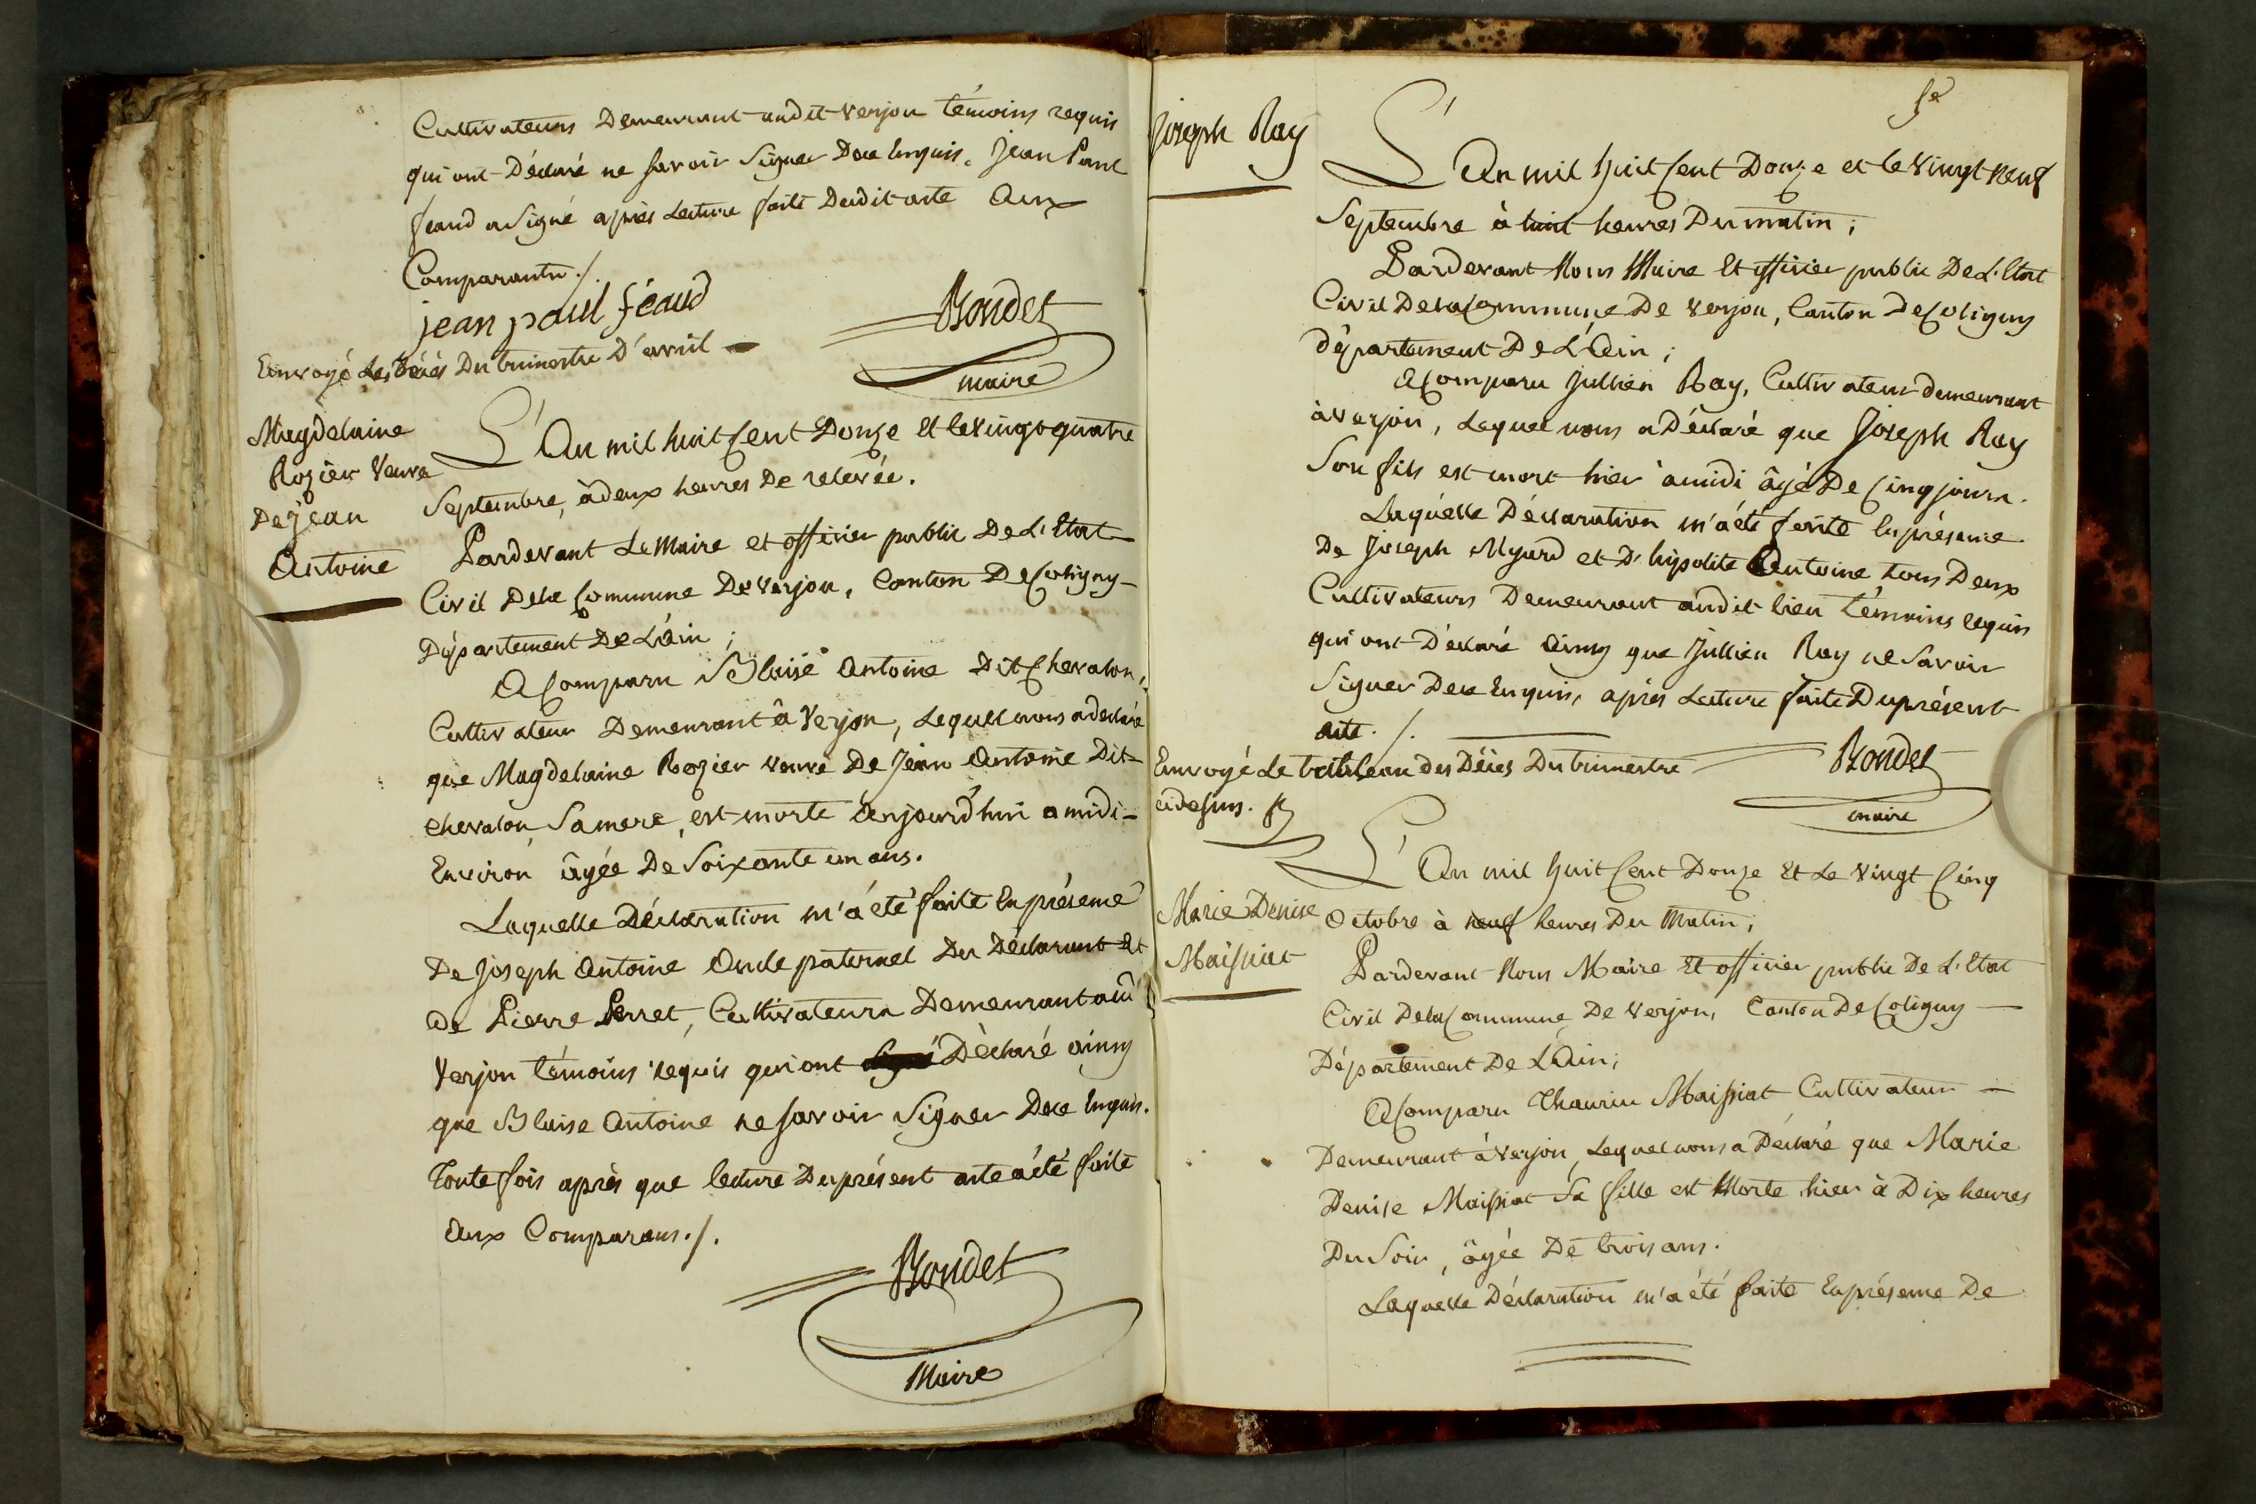 Cultivateurs Demeurant audit Verjon témoins requis
qui ont Déclaré ne savoir Signer Dece Enquis. Jean Paul
feaud a Signé après Lecture faite Dudit acte Aux
Comparants ./.
jean paul féaud
Bondet
maire
Envoyé Les Décés Du trimestre D'avril
Magdelaine
Rozier Veuve
De jean
Antoine
L'An mil huit Cent Douze Et le vingt quatre
Septembre, à deux heures De relevée.
Pardevant Le Maire et officier public De L'Etat
Civil Dela Commune De Verjon, Canton De Coligny
Département De L'ain ;
A Comparu Blaise Antoine Dit Chevalon,
Cultivateur Demeurant à Verjon, Lequel nous a déclaré
que Magdelaine Rozier veuve De Jean Antoine Dit
chevalon Sa mere, est morte Aujourd'hui a midi
Environ âgée De Soixante un ans.
Laquelle Déclaration m'a été faite En présence
De Joseph Antoine Oncle paternel Du Déclarant Et
de Pierre Perret, Cultivateurs Demeurant au
Verjon témoins requis qui ont Déclaré ainsy
que Blaise Antoine ne savoir Signer Dece Enquis.
Toute fois après que lecture Du présent acte a été faite
Aux Comparans ./.
Bondet
Maire
Joseph Ray
L'An mil huit Cent Douze et le Vingt neuf
Septembre à huit heures Du matin ;
Pardevant Nous Maire Et officier public De L'Etat
Civil Dela Commune De Verjon, Canton De Coligny
département De L'Ain ;
A Comparu Jullien Ray, Cultivateur demeurant
à Verjon, Lequel nous a Déclaré que Joseph Ray
Son fils est mort hier à midi âgé De Cinq jours.
Laquelle Déclaration m'a été faite En présence
De Joseph Myard et D'hipolite Antoine tous Deux
Cultivateurs Demeurant audit lieu témoins requis
qui ont Déclaré Ainsy que Jullien Ray ne Savoir
Signer Dece Enquis, après Lecture faite Du présent
acte ./.
Bondet
maire
Envoyé Le tableau des Décés Du trimestre
cidessus.
Marie Denise
Maissiat
L'An mil huit Cent Douze Et Le Vingt Cinq
Octobre à neuf heures Du Matin ;
Pardevant Nous Maire Et officier public De L'Etat
Civil Dela Commune De Verjon, Canton De Coligny
Département De L'Ain ;
A Comparu Thaurin Maissiat Cultivateur
Demeurant à Verjon, Lequel nous a Déclaré que Marie
Denise Maissiat Sa fille est Morte hier à Dix heures
Du Soir, âgée De trois ans.
Laquelle Déclaration m'a été faite En présence De